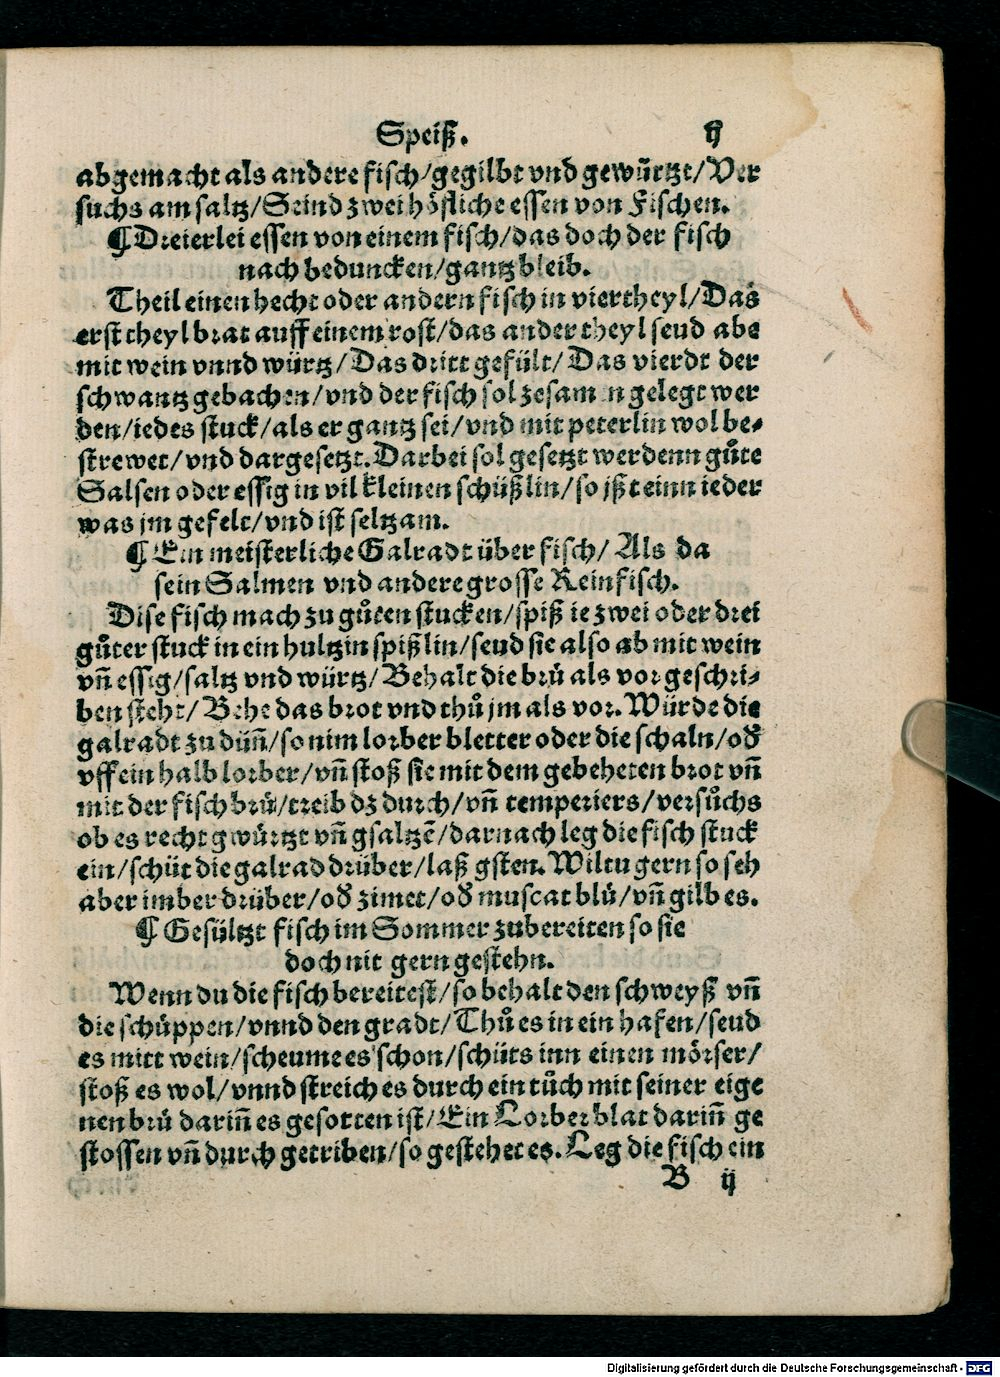 Speiß. ij
abgemacht als andere fisch/gegilbt vnd gewürtzt/Ver
suchs am saltz/Seind zwei höfliche essen von Fischen.
¶ Dreierlei essen von einem fisch/das doch der fisch
nach beduncken/gantz bleib.
Theil einen hecht oder andern fisch in viertheyl/Das
erst theyl brat auff einem rost/das ander theyl seud abe
mit wein vnnd würtz/Das dritt gefült/Das vierdt der
schwantz gebachen/vnd der fisch sol zesamen gelegt wer
den/iedes stuck/als er gantz sei/vnd mit peterlin wol be-
strewet/vnd dargesetzt. Darbei sol gesetzt werdenn gůte
Salsen oder essig in vil kleinen schüßlin/so jßt einn ieder
was jm gefelt/vnd ist seltzam.
¶ Ein meisterliche Galradt über fisch/ Als da
sein Salmen vnd andere grosse Reinfisch.
Dise fisch mach zu gůten stucken/spiß ie zwei oder drei
gůter stuck in ein hultzin spißlin/seud sie also ab mit wein
vñ essig/saltz vnd würtz/Behalt die brü als vor geschri-
ben steht/Behe das brot vnd thů jm als vor. Würde die
galradt zu düñ/so nim lorber bletter oder die schaln/od̕
vff ein halb lorber/vñ stoß sie mit dem gebeheten brot vñ
mit der fisch brü/treib dz durch/vñ temperiers/versůchs
ob es recht gwürtzt vñ gsaltzẽ/darnach leg die fisch stuck
ein/schüt die galrad drüber/laß gsten. Wiltu gern so seh
aber imber drüber/od̕ zimet/od̕ muscat blü/vñ gilb es.
¶ Gesültzt fisch im Sommer zubereiten so sie
doch nit gern gestehn.
Wenn du die fisch bereitest/so behalt den schweyß vñ
die schüppen/vnnd den gradt/Thů es in ein hafen/seud
es mitt wein/scheume es schon/schüts inn einen mörser/
stoß es wol/vnnd streich es durch ein tůch mit seiner eige
nen brü dariñ es gesotten ist/Ein Lorber blat dariñ ge
stossen vñ durch getriben/so gestehet es. Leg die fisch ein
B ij
Digitalisierung gefördert durch die Deutsche Forschungsgemeinschaft - DFG